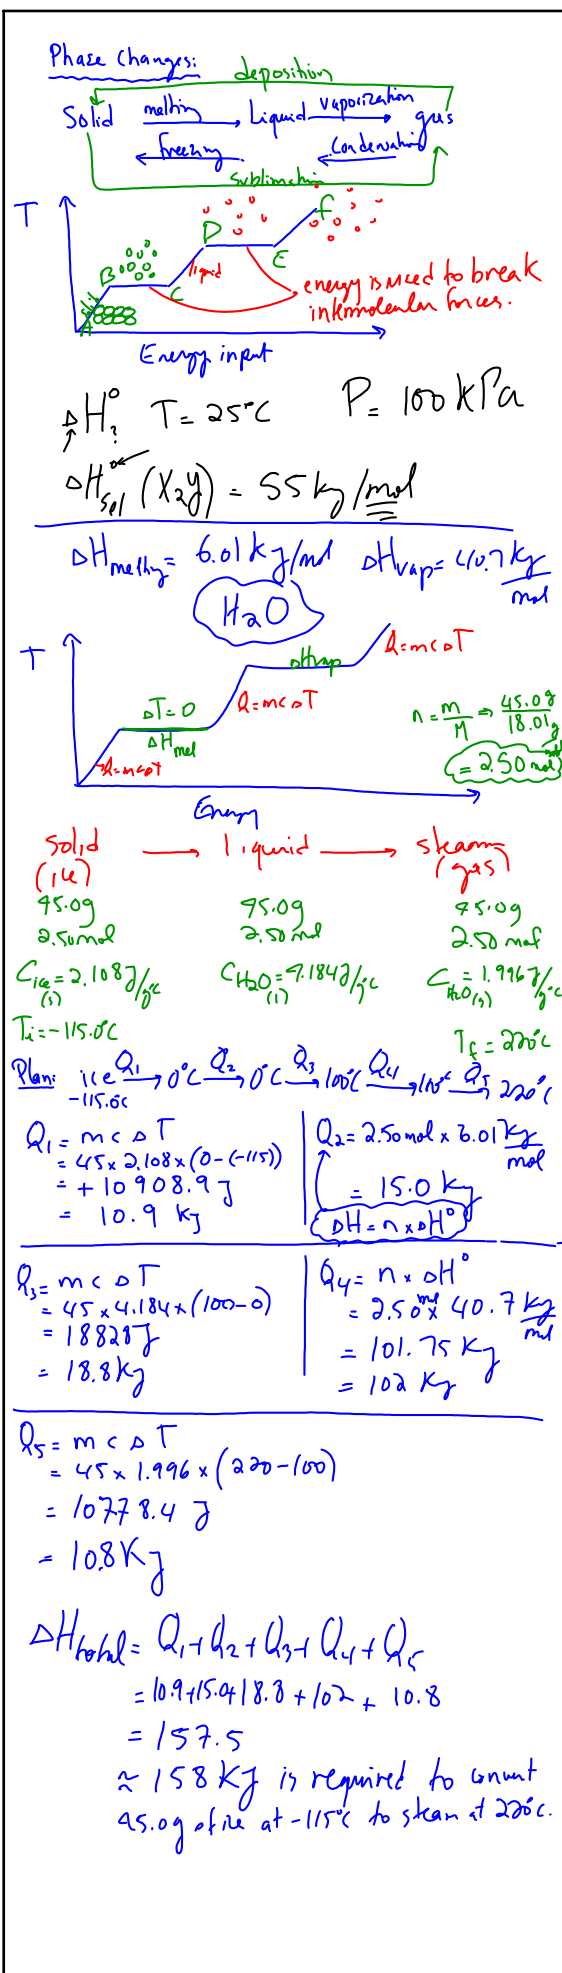 Phase Changes:
deposition
Solid melting Liquid vaporization gas
freezing Condensation
sublimation
T
A B C D E F
liquid
energy is used to break
intermolecular forces.
Energy input
ΔH°? T = 25°C P = 100 kPa
ΔH°sol (X₂Y) = 55 kJ/mol
ΔHmelting = 6.01 kJ/mol ΔHvap = 40.7 kJ/mol
H₂O
T
Q = mcΔT
ΔHvap
ΔT = 0 Q = mcΔT
ΔHmel
Q = mcΔT
n = m/M ⇒ 45.0g/18.01g
= 2.50 mol
Energy
solid → liquid → steam
(ice) (gas)
45.0g 45.0g 45.0g
2.50 mol 2.50 mol 2.50 mol
Cice(s) = 2.108 J/g°C CH₂O(l) = 4.184 J/g°C CH₂O(g) = 1.996 J/g°C
Ti = -115.0°C
Tf = 220°C
Plan: ice Q₁ → 0°C Q₂ → 0°C Q₃ → 100°C Q₄ → 100°C Q₅ → 220°C
-115.0°C
Q₁ = mcΔT
= 45 x 2.108 x (0-(-115))
= +10908.9 J
= 10.9 kJ
Q₂ = 2.50 mol x 6.01 kJ/mol
= 15.0 kJ
ΔH = n x ΔH°
Q₃ = mcΔT
= 45 x 4.184 x (100-0)
= 18828 J
= 18.8 kJ
Q₄ = n x ΔH°
= 2.50 mol x 40.7 kJ/mol
= 101.75 kJ
= 102 kJ
Q₅ = mcΔT
= 45 x 1.996 x (220-100)
= 10778.4 J
= 10.8 kJ
ΔHtotal = Q₁ + Q₂ + Q₃ + Q₄ + Q₅
= 10.9 + 15.0 + 18.8 + 102 + 10.8
= 157.5
≈ 158 kJ is required to convert
45.0g of ice at -115°C to steam at 220°C.